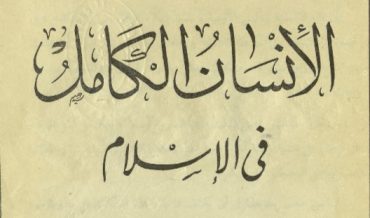 الإنسان الكامل
في الإسلام